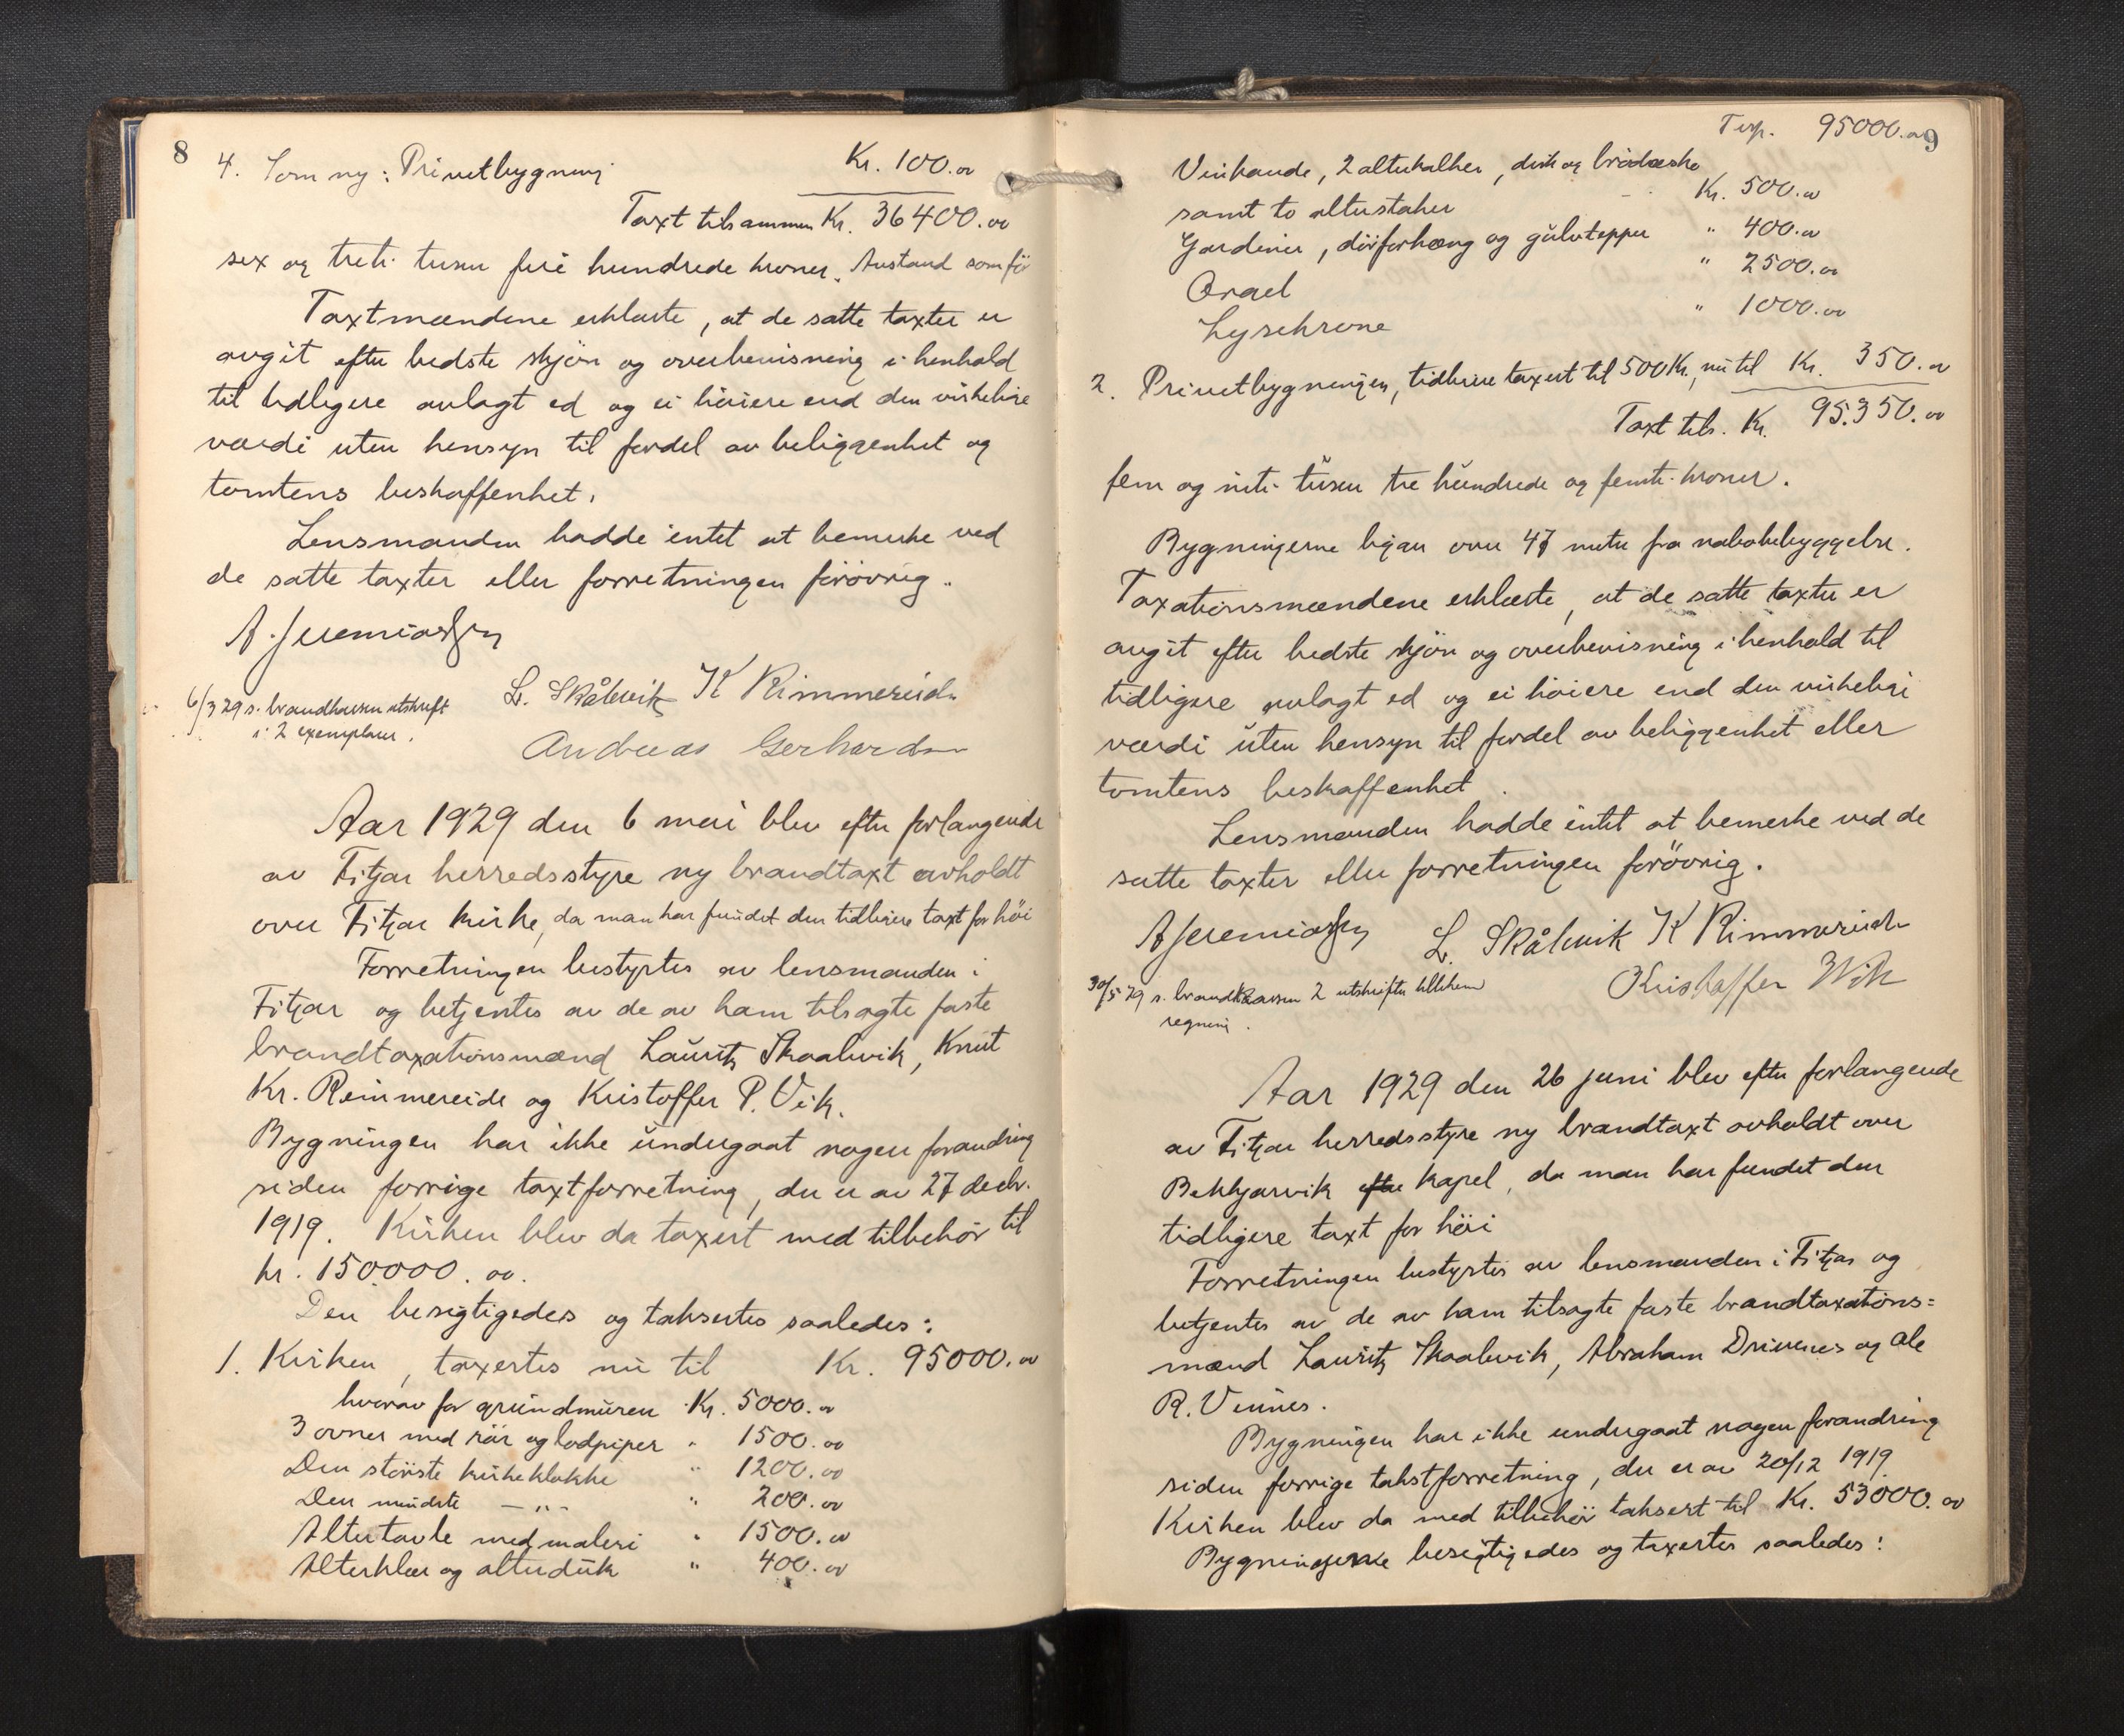 8
4. Som ny: Privetbygning Kr. 100.00
Taxt tilsammen Kr. 36400.00
sex og treti tusen fire hundrede kroner. Avstand som før
Taxtmændene erklærte, at de satte taxter er
avgit efter bedste skjøn og overbevisning i henhold
til tidligere avlagt ed og ei høiere end den virkelige
værdi uten hensyn til fordel av beliggenhet og
tomtens beskaffenhet.
Lensmanden hadde intet at bemerke ved
de satte taxter eller forretningen forøvrig.
A. Jeremiassen
6/3 29 s. brandkassen utskrift
i 2 exemplarer.
L. Skålevik K Rimmereide
Andreas Gerhardsen
Aar 1929 den 6 mai blev efter forlangende
av Fitjar herredsstyre ny brandtaxt avholdt
over Fitjar kirke, da man har fundet den tidligere taxt for høi
Forretningen bestyrtes av lensmanden i
Fitjar og betjentes av de av ham tilsagte faste
brandtaxationsmænd Lauritz Skaalevik, Knut
Kr. Reimmereide og Kristoffer P. Vik.
Bygningen har ikke undergaat nogen forandring
siden forrige taxtforretning, der er av 27 decbr.
1919. Kirken blev da taxert med tilbehör til
kr. 150000.00.
Den besigtigedes og taksertes saaledes:
1. Kirken, taxertes nu til Kr. 95000.00
hvorav for grundmuren Kr. 5000.00
3 ovner med rör og lodpiper " 1500.00
Den störste kirkeklokke " 1200.00
Den mindste — " — " 200.00
Altertavle med maleri " 1500.00
Alterklær og alterduk " 400.00
Trsp. 95000.00
9
Vinkande, 2 alterkalker, disk og brödæske
samt to alterstaker Kr. 500.00
Gardiner, dörforhæng og gulvtepper " 400.00
Orgel " 2500.00
Lysekrone " 1000.00
2. Privetbygningen, tidligere taxert til 500 Kr., nu til Kr. 350.00
Taxt tils. Kr. 95.350.00
fem og niti tusen tre hundrede og femti kroner.
Bygningerne ligger over 47 meter fra nabobebyggelse.
Taxationsmændene erklærte, at de satte taxter er
avgit efter bedste skjøn og overbevisning i henhold til
tidligere avlagt ed og ei høiere end den virkelige
værdi uten hensyn til fordel av beliggenhet eller
tomtens beskaffenhet.
Lensmanden hadde intet at bemerke ved de
satte taxter eller forretningen forøvrig.
A Jeremiassen L. Skålevik K Rimmereide
30/5 29 s. brandkassen 2 utskrifter tillikem
regning.
Kristoffer Wik
Aar 1929 den 26 juni blev efter forlangende
av Fitjar herredsstyre ny brandtaxt avholdt over
Bekkjarvik efter kapel, da man har fundet den
tidligere taxt for høi
Forretningen bestyrtes av lensmanden i Fitjar og
betjentes av de av ham tilsagte faste brandtaxations=
mænd Lauritz Skaalevik, Abraham Drivenes og Ole
R. Vennes.
Bygningen har ikke undergaat nogen forandring
siden forrige takstforretning, der er av 20/12 1919
Kirken blev da med tilbehör taksert til Kr. 53000.00
Bygningerne besigtigedes og taxertes saaledes: